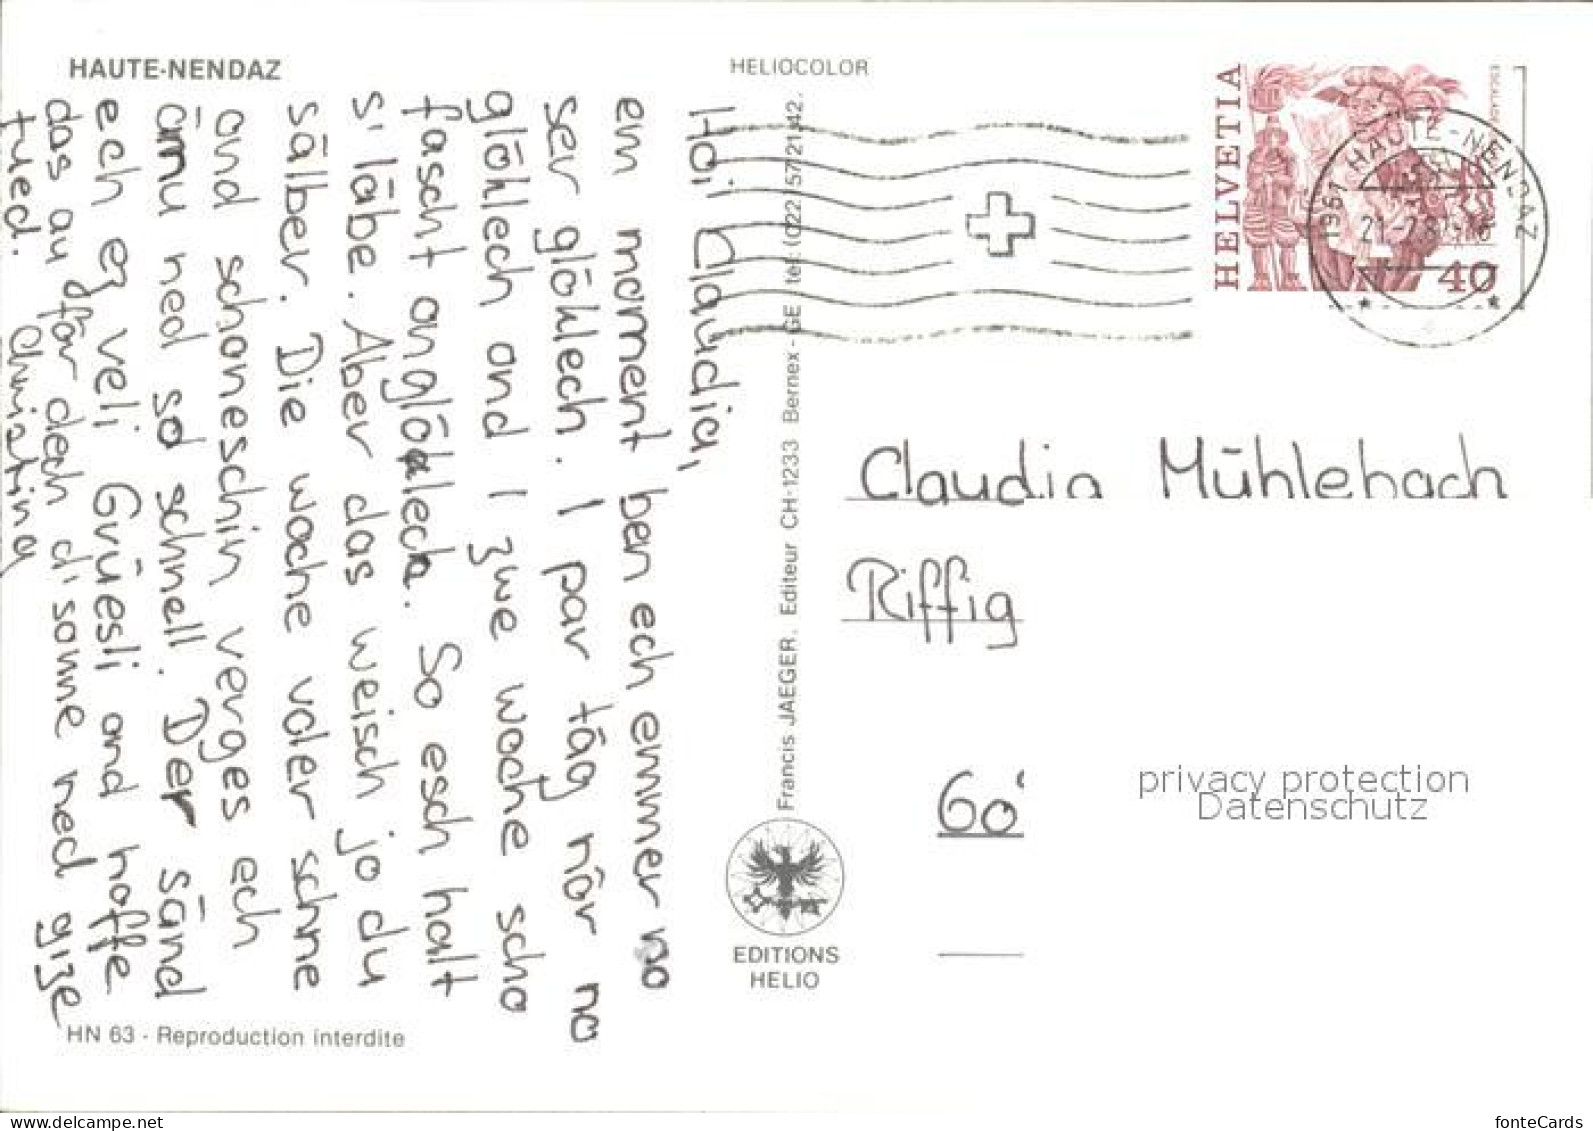 HAUTE-NENDAZ
HELIOCOLOR
HELVETIA
40
1961 HAUTE-NENDAZ
Hoi Claudia,
em moment ben ech emmer no
ser glöhlech. I par täg nör no
glöhlech and I zwe woche scho
fascht onglöhlech. So esch halt
s'läbe. Aber das weisch jo du
sälber. Die woche voler schne
and schoneschin verges ech
ämu ned so schnell. Der sänd
ech eg veli Grüesli and hoffe
das au för dech d'sonne ned gize
tued. Christina
Francis JAEGER, Editeur CH-1233 Bernex-GE tel. (022) 57 21 42.
EDITIONS
HELIO
Claudia Mühlebach
Riffig
60
privacy protection
Datenschutz
HN 63 - Reproduction interdite
www.delcampe.net
fonteCards